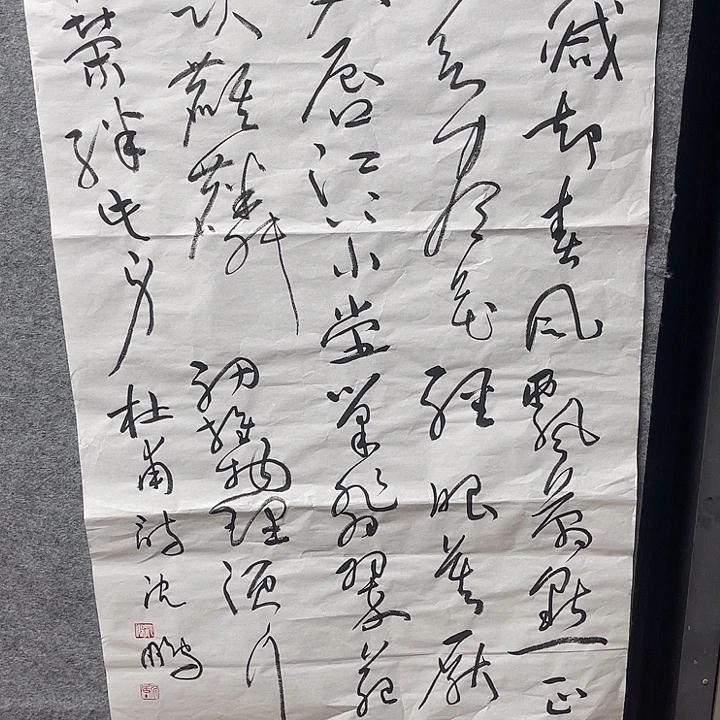 減却春風飄萬點正
欲盡花經眼莫厭
唇江上小堂巢翡翠苑
麒麟細推物理須行
榮絆此身杜甫詩沈鵬